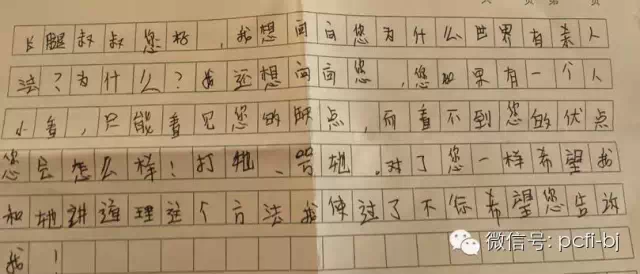 长腿叔叔您好，我想问问您为什么世界有亲人
法？为什么？我还想问问您，您如果有一个人
小看，只能看见您的缺点，而看不到您的优点
您会怎么样！打他、骂他，对了您一样希望我
和他讲道理这个方法我使过了不你希望您告诉
我！
微信号: pcfi-bj